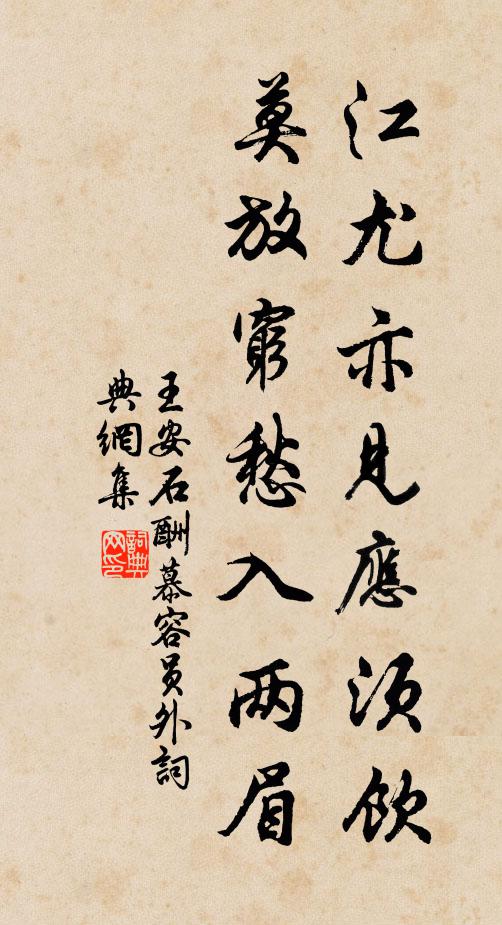 江尤亦見應須飲
莫放窮愁入两眉
王安石酬慕容员外詞
典網集
詞典
网印